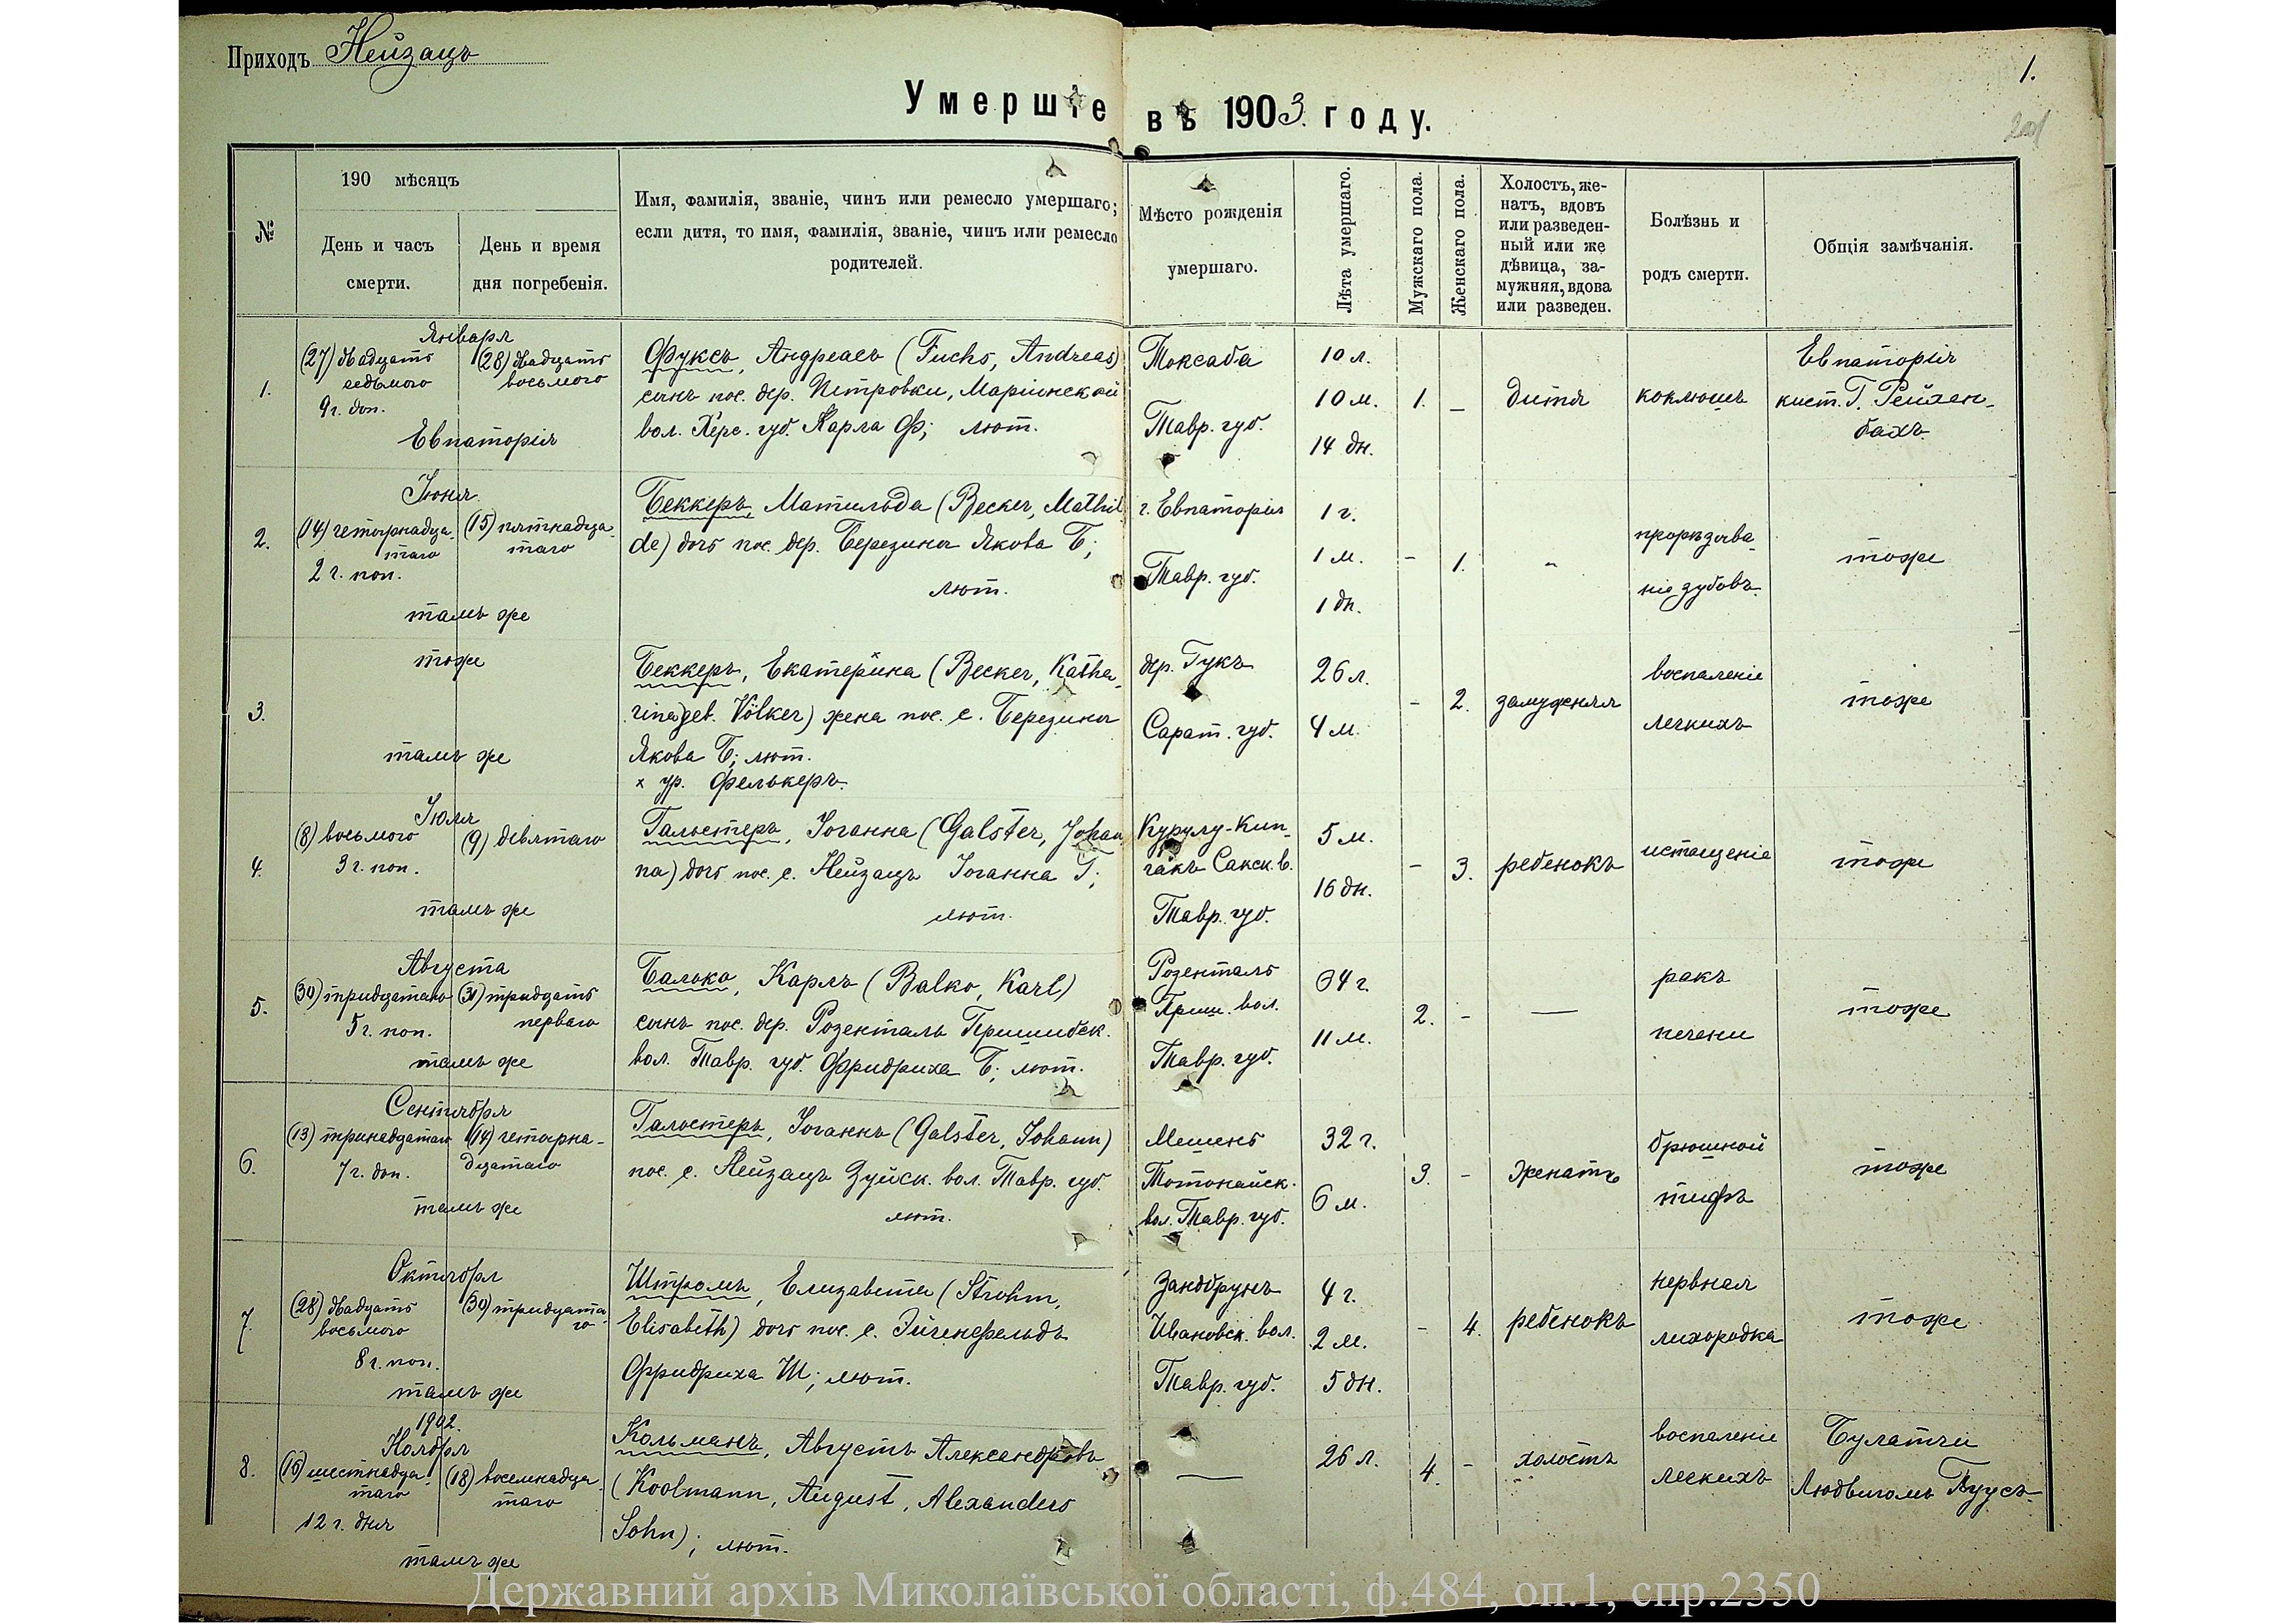 Приходъ Нейзацъ
1.
201
Умершіе въ 1903. году.
№
190 мѣсяцъ
День и часъ
смерти.
День и время
дня погребенія.
Имя, фамилія, званіе, чинъ или ремесло умершаго;
если дитя, то имя, фамилія, званіе, чинъ или ремесло
родителей.
Мѣсто рожденія
умершаго.
Лѣта умершаго.
Мужскаго пола.
Женскаго пола.
Холостъ, же-
натъ, вдовъ
или разведен-
ный или же
дѣвица, за-
мужняя, вдова
или разведен.
Болѣзнь и
родъ смерти.
Общія замѣчанія.
1.
Января
(27) двадцать
седьмого
9 г. доп.
(28) двадцать
восьмого
Евпаторія
Фуксъ, Андреасъ (Fuchs, Andreas)
сынъ пос. дер. Петровки, Маріинской
вол. Херс. губ. Карла Ф; лют.
Токсаба
Тавр. губ.
10 л.
10 м.
14 дн.
1.
–
дитя
коклюшъ
Евпаторія
кист. Г. Рейхен-
бахъ.
2.
Іюня
(14) четырнадца-
таго
2 г. поп.
(15) пятнадца-
таго
тамъ же
Беккеръ, Матильда (Becker, Mathil
de) дочь пос. дер. Березина Якова Б;
лют.
г. Евпаторія
Тавр. губ.
1 г.
1 м.
1 дн.
–
1.
"
прорѣзыва-
ніе зубовъ.
тоже
3.
тоже
тамъ же
Беккеръ, Екатерина ˣ (Becker, Katha-
rina geb. Völker) жена пос. с. Березина
Якова Б; лют.
× ур. Фелькеръ.
дер. Гукъ
Сарат. губ.
26 л.
4 м.
–
2.
замужняя
воспаленіе
легкихъ
тоже
4.
Іюля
(8) восьмого
3 г. поп.
(9) девятаго
тамъ же
Гальстеръ, Іоганна (Galster, Johan
na) дочь пос. с. Нейзацъ Іоганна Г;
лют.
Курулу-Кип-
чакъ Сакск. в.
Тавр. губ.
5 м.
16 дн.
–
3.
ребенокъ
истощеніе
тоже
5.
Августа
(30) тридцатаго
5 г. поп.
(31) тридцать
перваго
тамъ же
Балько, Карлъ (Balko, Karl)
сынъ пос. дер. Розенталь Пришибск.
вол. Тавр. губ. Фридриха Б; лют.
Розенталь
Приш. вол.
Тавр. губ.
34 г.
11 м.
2.
–
—
ракъ
печени
тоже
6.
Сентября
(13) тринадцатаго
7 г. доп.
(14) четырна-
дцатаго
тамъ же
Гальстеръ, Іоганнъ (Galster, Johann)
пос. с. Нейзацъ Зуйск. вол. Тавр. губ.
лют.
Мешень
Тотонайск.
вол. Тавр. губ.
32 г.
6 м.
3.
–
женатъ
брюшной
тифъ
тоже
7.
Октября
(28) двадцать
восьмого
8 г. поп.
(30) тридцата-
го
тамъ же
Штромъ, Елизавета (Strohm,
Elisabeth) дочь пос. с. Эйгенфельдъ
Фридриха Ш; лют.
Зандбрунъ
Ивановск. вол.
Тавр. губ.
4 г.
2 м.
5 дн.
–
4.
ребенокъ
нервная
лихородка
тоже
8.
1902.
Ноября
(16) шестнадца-
таго
12 г. дня
(18) восемнадца-
таго
тамъ же
Кольманъ, Августъ Александровъ
(Koolmann, August, Alexanders
Sohn); лют.
—
26 л.
4.
–
холостъ
воспаленіе
легкихъ
Булатчи
Людвигомъ Буусъ
Державний архів Миколаївської області, ф.484, оп.1, спр.2350